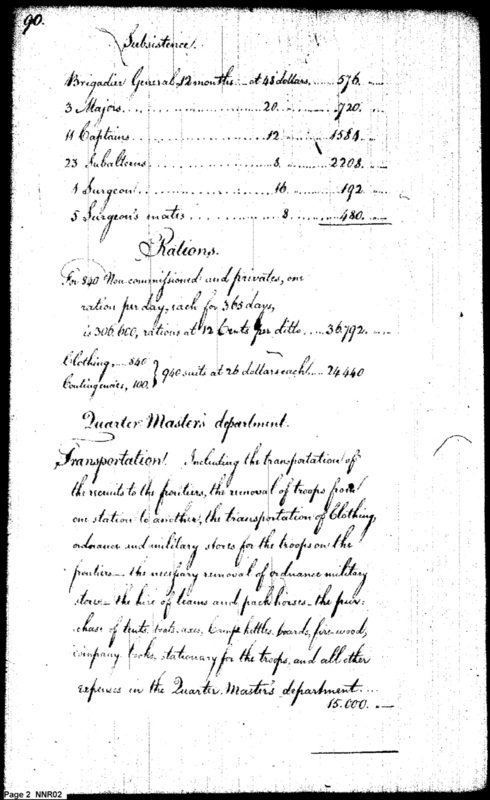 90.
Subsistence.
Brigadier General, 12 months at 48 dollars 576.
3 Majors 20 720.
11 Captains 12 1584.
23 Subalterns 8. 2208.
1 Surgeon 16 192
5 Surgeon's mates 8. 480.
Rations.
For 840 Non commissioned and privates, one
ration per day, each for 365 days,
is 306.600, rations at 12 Cents per ditto 36,792.
Clothing, 840
Contingencies, 100. } 940 suits at 26 dollars each 24 440
Quarter Master's department.
Transportation. Including the transportation of
the recruits to the frontiers, the removal of troops from
one station to another, the transportation of Clothing,
ordnance and military stores for the troops on the
frontiers – the necessary removal of ordnance military
stores – the hire of teams and pack horses – the pur-
chase of tents, boats, axes, Camp kettles, boards, fire wood,
Company books, stationary for the troops, and all other
expenses in the Quarter Master's department
15.000.
Page 2 NNR02